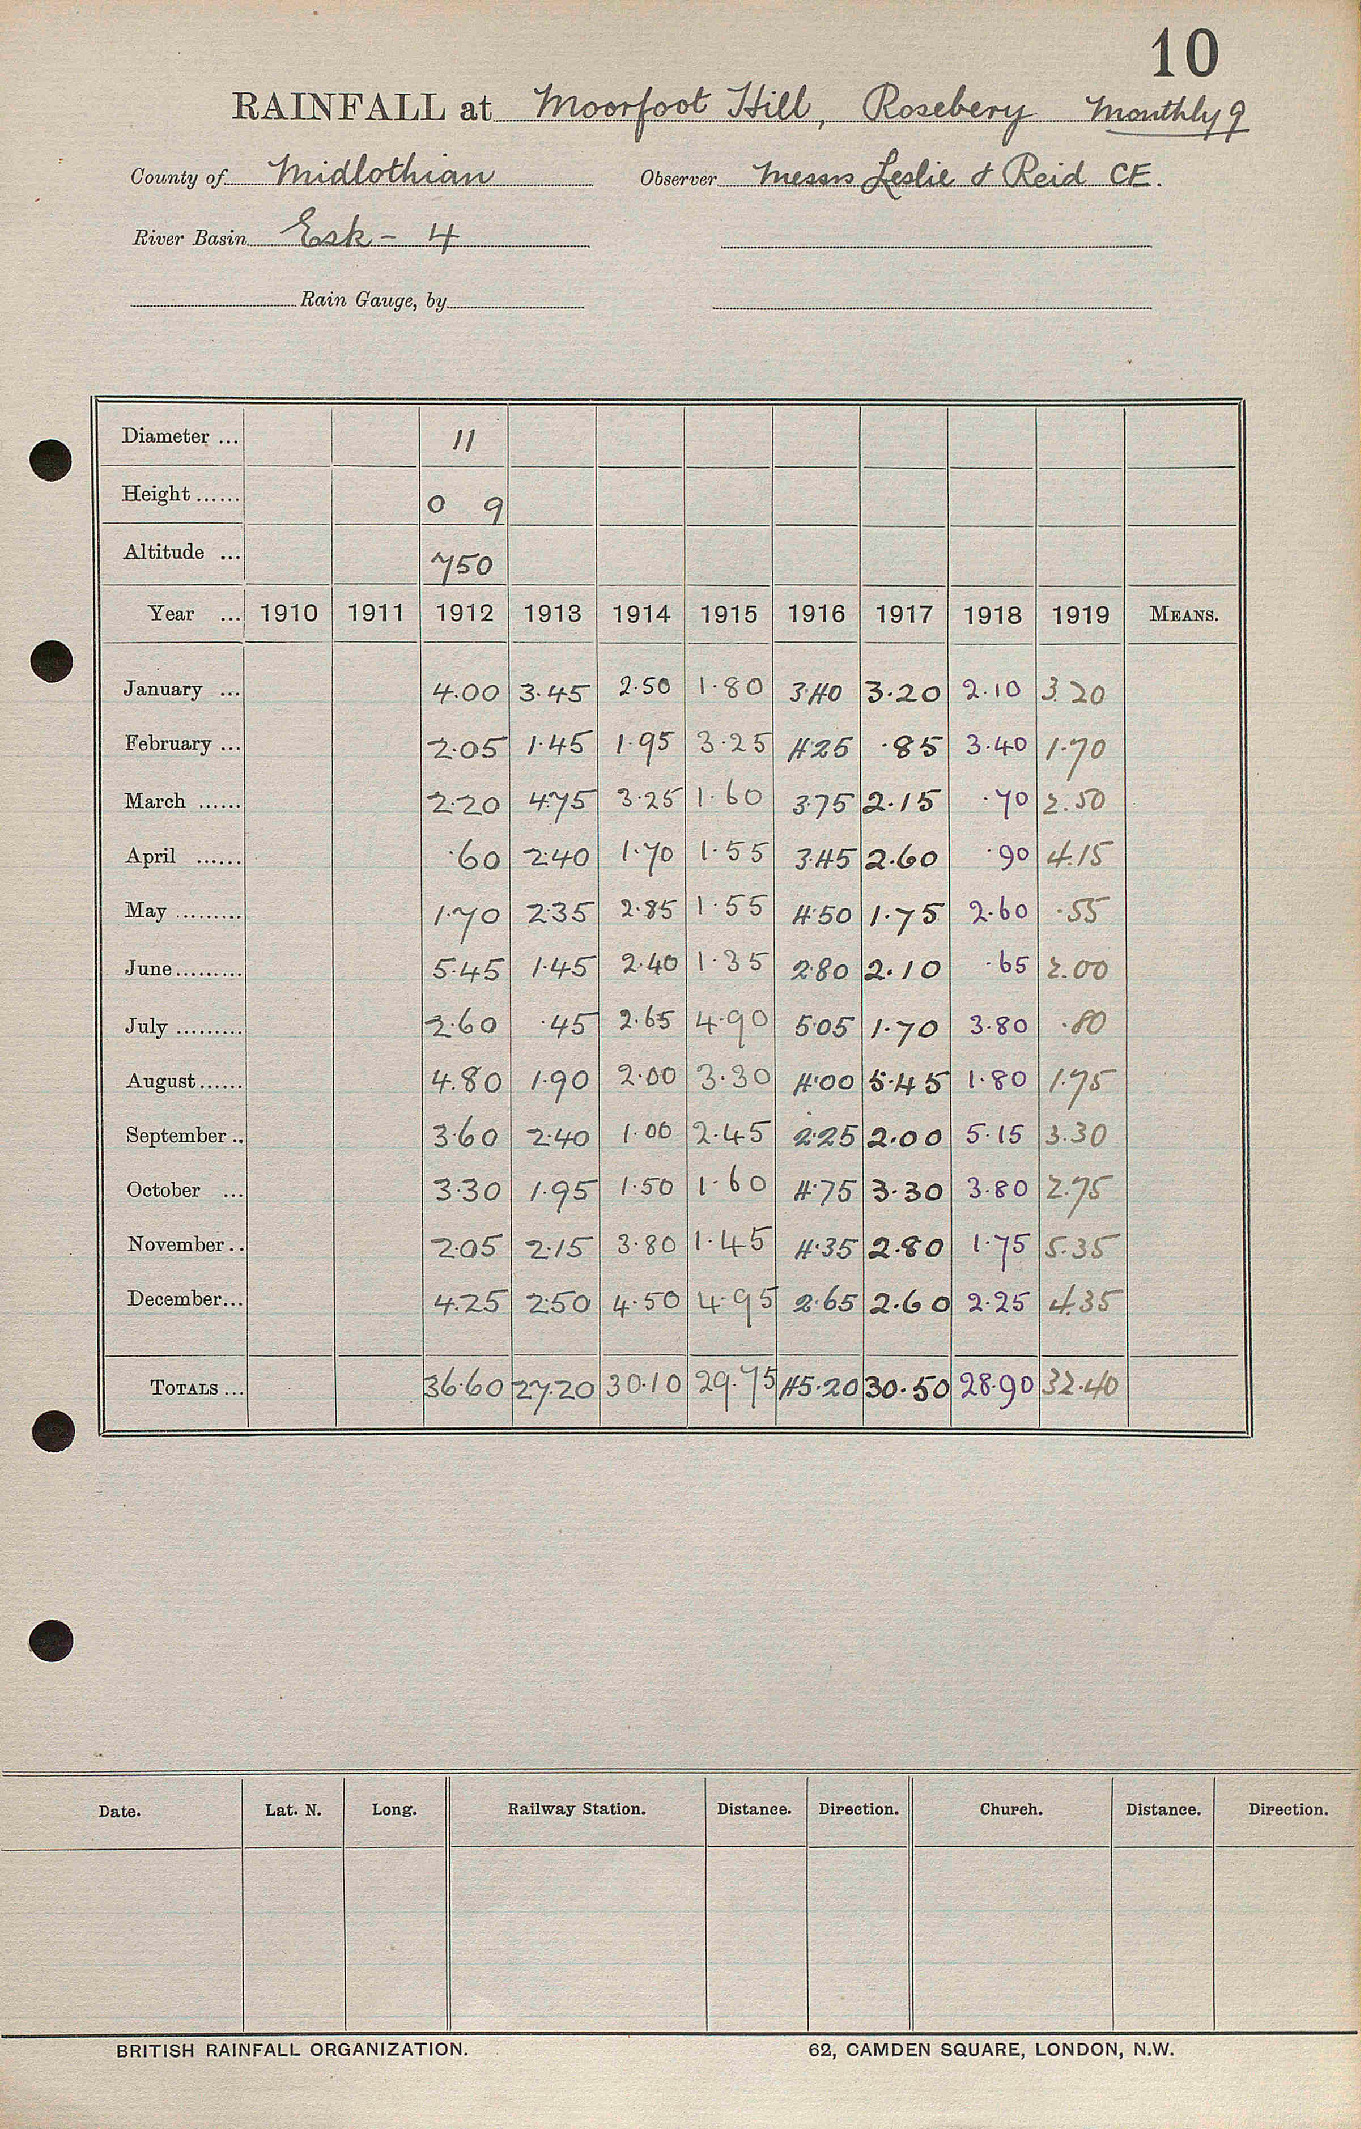 10
RAINFALL at Moorfoot Hill, Rosebery Monthly 9
County of Midlothian Observer Messrs Leslie & Reid CE.
River Basin Esk - 4
Rain Gauge, by
Diameter ... 11
Height ...... 0 9
Altitude ... 750
Year ... 1910 1911 1912 1913 1914 1915 1916 1917 1918 1919 MEANS.
January ... 4.00 3.45 2.50 1.80 3.40 3.20 2.10 3.20
February ... 2.05 1.45 1.95 3.25 4.25 .85 3.40 1.70
March ...... 2.20 4.75 3.25 1.60 3.75 2.15 .70 2.50
April ...... .60 2.40 1.70 1.55 3.45 2.60 .90 4.15
May ......... 1.70 2.35 2.85 1.55 4.50 1.75 2.60 .55
June......... 5.45 1.45 2.40 1.35 2.80 2.10 .65 2.00
July ......... 2.60 .45 2.65 4.90 5.05 1.70 3.80 .80
August...... 4.80 1.90 2.00 3.30 4.00 5.45 1.80 1.75
September .. 3.60 2.40 1.00 2.45 2.25 2.00 5.15 3.30
October ... 3.30 1.95 1.50 1.60 4.75 3.30 3.80 2.75
November .. 2.05 2.15 3.80 1.45 4.35 2.80 1.75 5.35
December... 4.25 2.50 4.50 4.95 2.65 2.60 2.25 4.35
TOTALS ... 36.60 27.20 30.10 29.75 45.20 30.50 28.90 32.40
Date. Lat. N. Long. Railway Station. Distance. Direction. Church. Distance. Direction.
BRITISH RAINFALL ORGANIZATION. 62, CAMDEN SQUARE, LONDON, N.W.